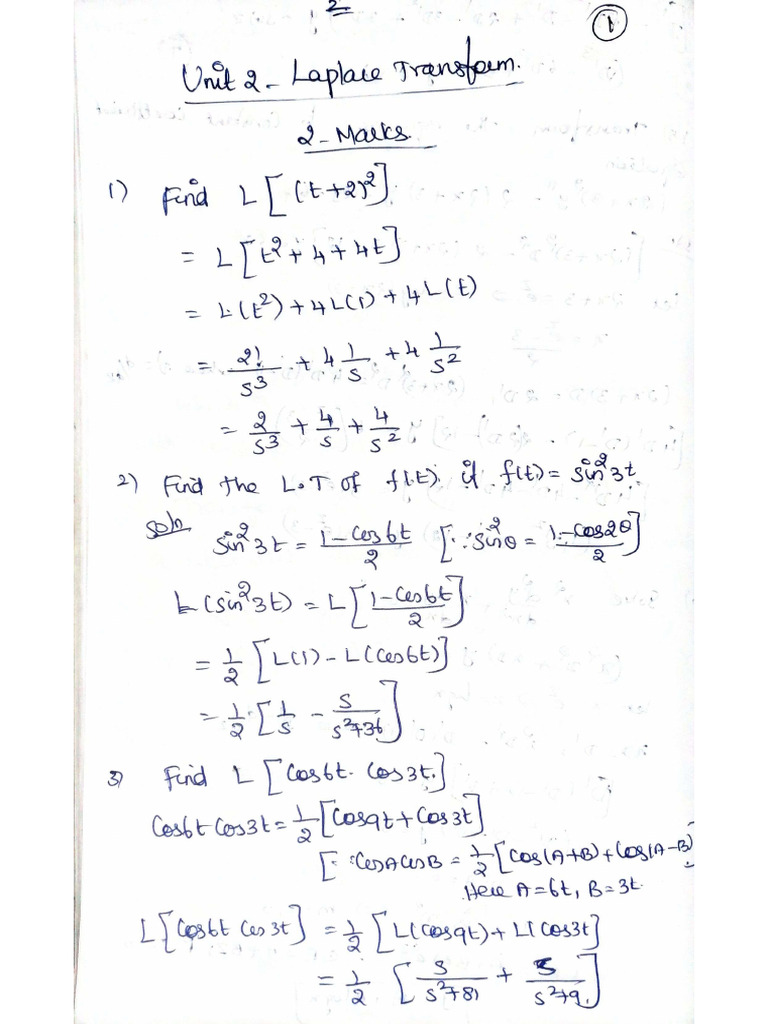 2
①
Unit 2 - Laplace Transform.
2-Marks.
1) Find L[(t+2)²]
= L[t²+4+4t]
= L(t²)+4L(1)+4L(t)
= 2!/s³ + 4 1/s + 4 1/s²
= 2/s³ + 4/s + 4/s²
2) Find the L.T of f(t) if f(t) = sin²3t.
Soln sin²3t = 1-cos6t/2 [∵ sin²θ = 1-cos2θ/2]
L(sin²3t) = L[1-cos6t/2]
= 1/2 [L(1) - L(cos6t)]
= 1/2 [1/s - s/s²+36]
3) Find L[cos6t. cos3t.]
cos6t cos3t = 1/2 [cos9t + cos3t]
[∵ cosAcosB = 1/2 [cos(A+B)+cos(A-B)
Here A=6t, B=3t.
L[cos6t cos3t] = 1/2 [L(cos9t) + L(cos3t]
= 1/2 [s/s²+81 + s/s²+9.]